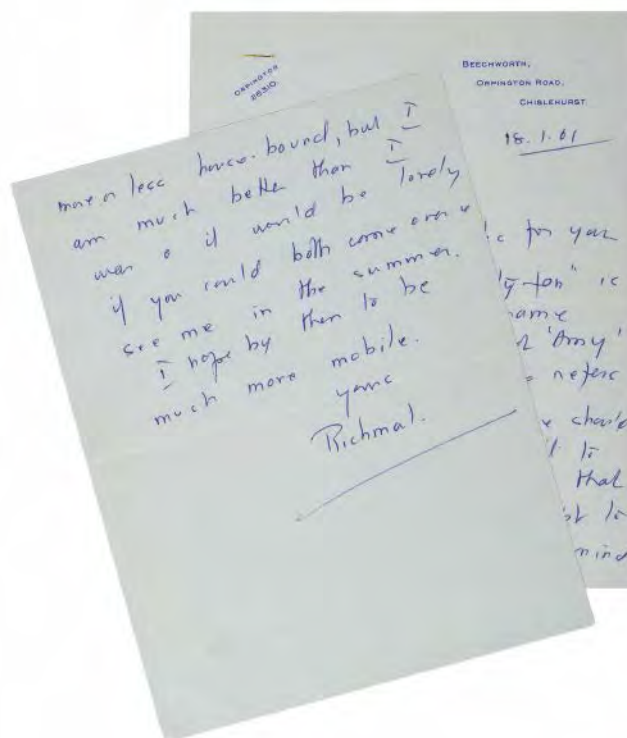 ORPINGTON
26310.
BEECHWORTH,
ORPINGTON ROAD,
CHISLEHURST.
18.1.61
for your
is
name
'Amy'
refers
should
to
that
to
mind
more or less house-bound, but I
am much better than I
was & it would be lovely
if you could both come over &
see me in the summer.
I hope by then to be
much more mobile.
yours
Richmal.